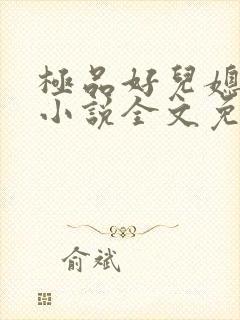 極品好兒媳
小說全文免
俞斌